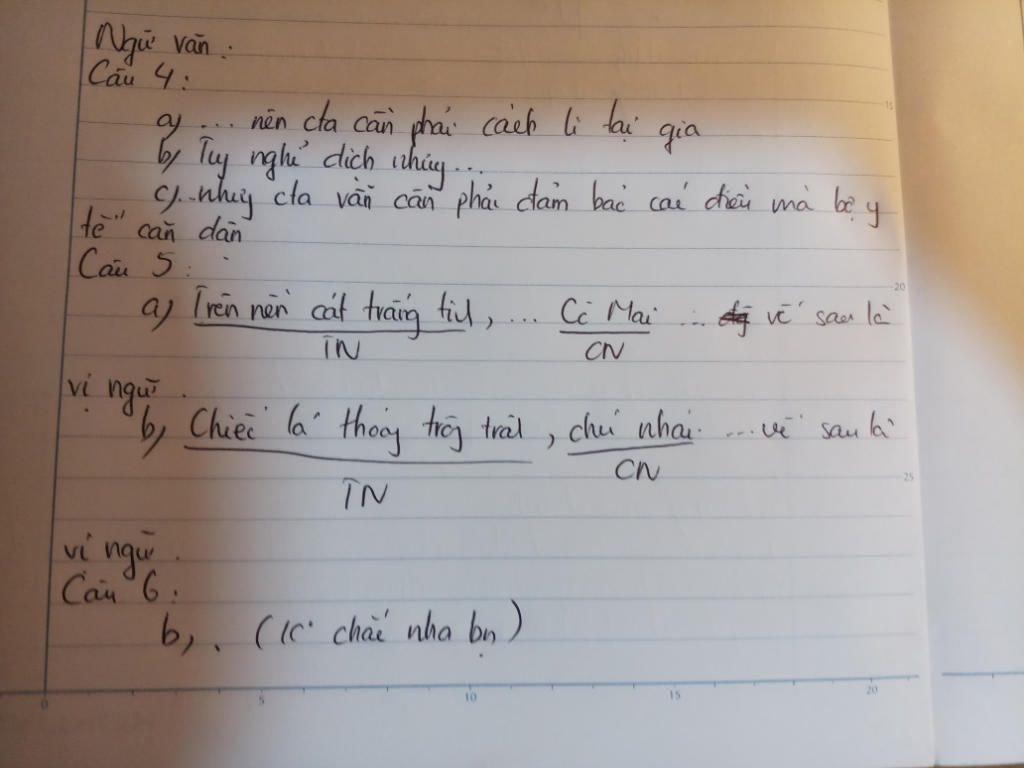 Ngữ văn.
Câu 4:
a) ... nên cta cần phải cách li tại gia
b) Tuy nghỉ dịch nhưng...
c) ...nhưng cta vẫn cần phải đảm bảo các điều mà bộ y
tế căn dặn
Câu 5:
a) Trên nền cát trắng tinh, ... Cô Mai ... vế sau là
TN CN
vị ngữ.
b) Chiếc lá thoáng tròng trành, chú nhái ... vế sau là
TN CN
vị ngữ.
Câu 6:
b, . (K chắc nha bn)
15
20
25
0 5 10 15 20